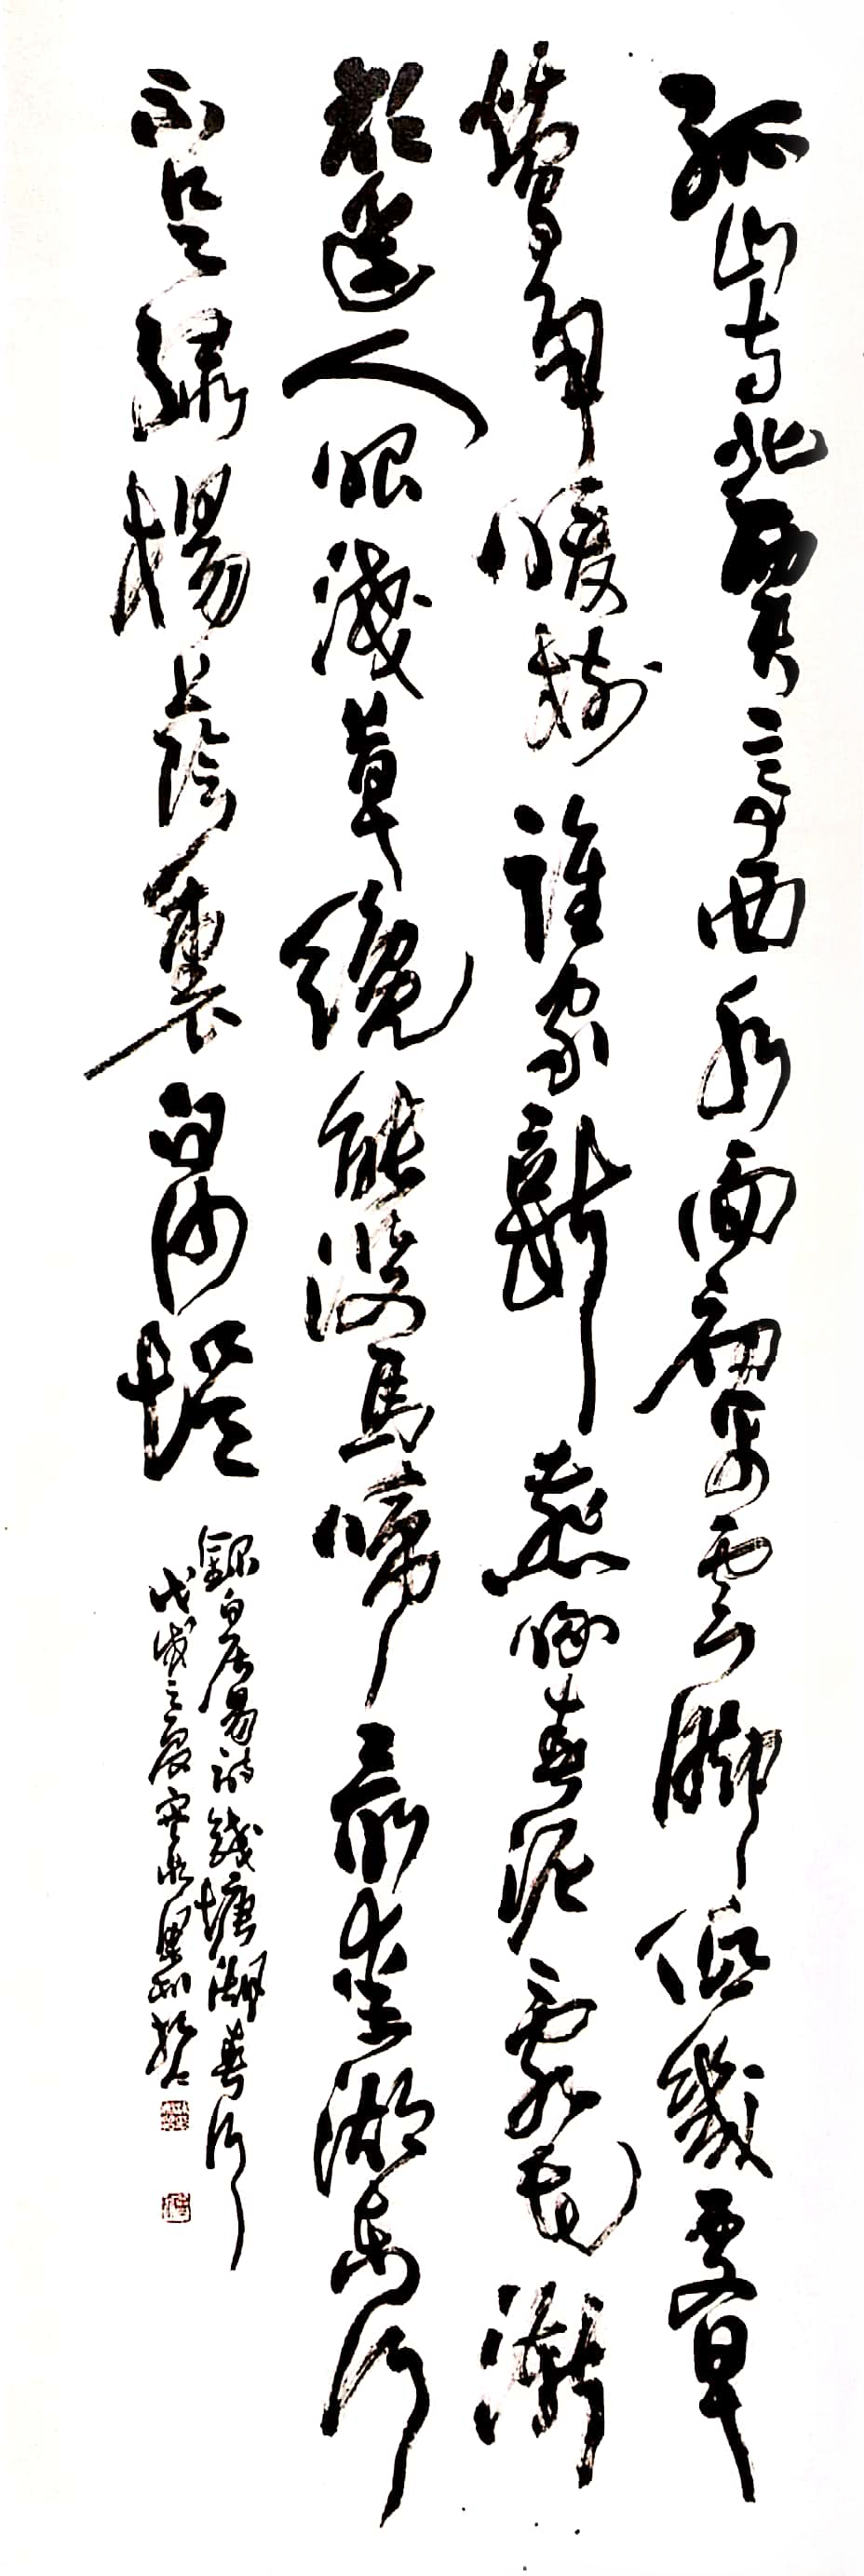 孤山寺北賈亭西水面初平雲腳低幾處早
鶯爭暖樹誰家新燕啄春泥亂花漸
欲迷人眼淺草纔能沒馬蹄最愛湖東行
不足綠楊蔭裏白沙堤
錄白居易詩錢塘湖春行
戊戌之夏